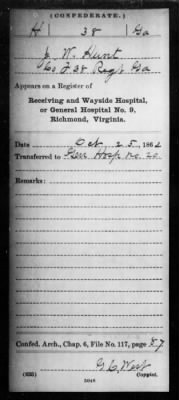 (CONFEDERATE.)
H 38 Ga
J. W. Hunt
Co. F 38 Reg't Ga
Appears on a Register of
Receiving and Wayside Hospital,
or General Hospital No. 9,
Richmond, Virginia.
Date Oct 25, 1862
Transferred to Gen Hosp No. 20
Remarks:
Confed. Arch., Chap. 6, File No. 117, page 57
G. C. West
(635) Copyist.